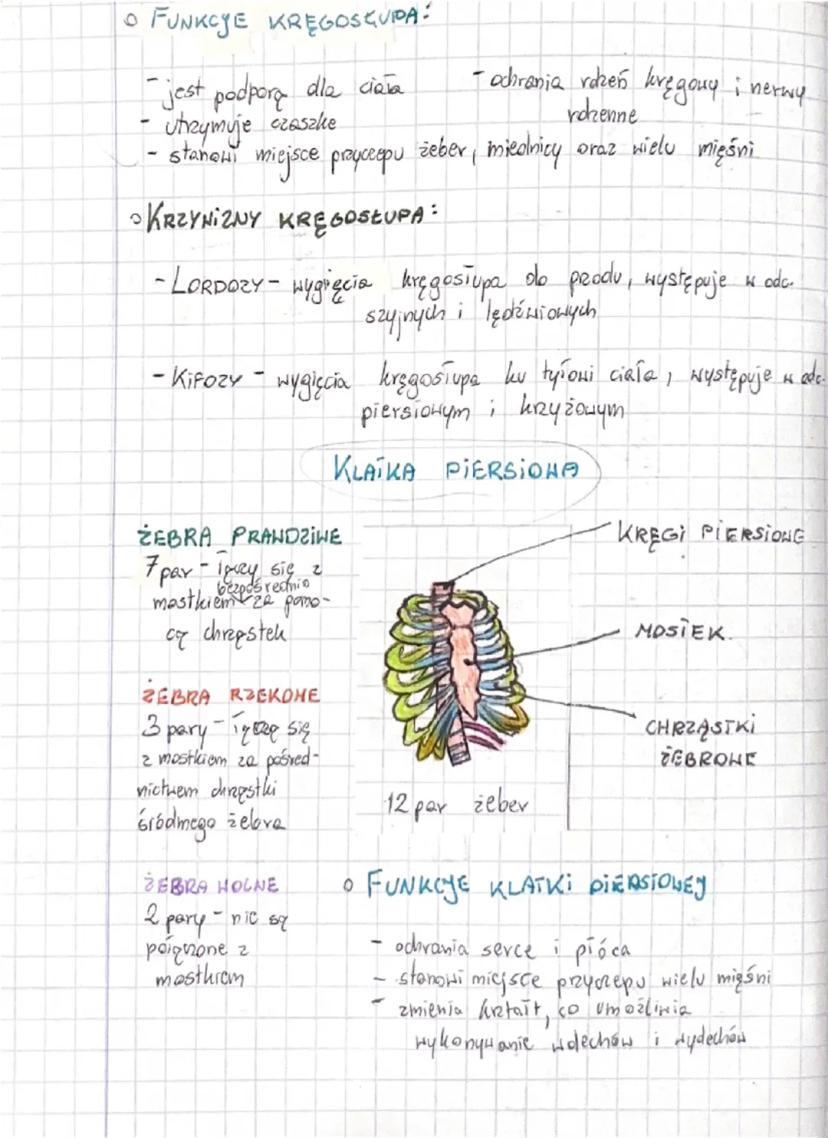 ○ FUNKCJE KRĘGOSŁUPA:
- jest podporą dla ciała
- utrzymuje czaszkę
- ochrania rdzeń kręgowy i nerwy
rdzenne
- stanowi miejsce przyczepu żeber, miednicy oraz wielu mięśni
○ KRZYWIZNY KRĘGOSŁUPA:
- LORDOZY - wygięcia kręgosłupa do przodu, występuje w odc.
szyjnych i lędźwiowych
- KIFOZY - wygięcia kręgosłupa ku tyłowi ciała, występuje w odc.
piersiowym i krzyżowym
KLATKA PIERSIOWA
ŻEBRA PRAWDZIWE
7 par - łączy się z
bezpośrednio
mostkiem za pomo-
cą chrząstek
ŻEBRA RZEKOME
3 pary - łączą się
z mostkiem za pośred-
nictwem chrząstki
śródmego żebra
ŻEBRA WOLNE
2 pary - nie są
połączone z
mostkiem
KRĘGI PIERSIOWE
MOSTEK
CHRZĄSTKI
ŻEBROWE
12 par żeber
○ FUNKCJE KLATKI PIERSIOWEJ
- ochrania serce i płuca
- stanowi miejsce przyczepu wielu mięśni
- zmienia kształt, co umożliwia
wykonywanie wdechów i wydechów